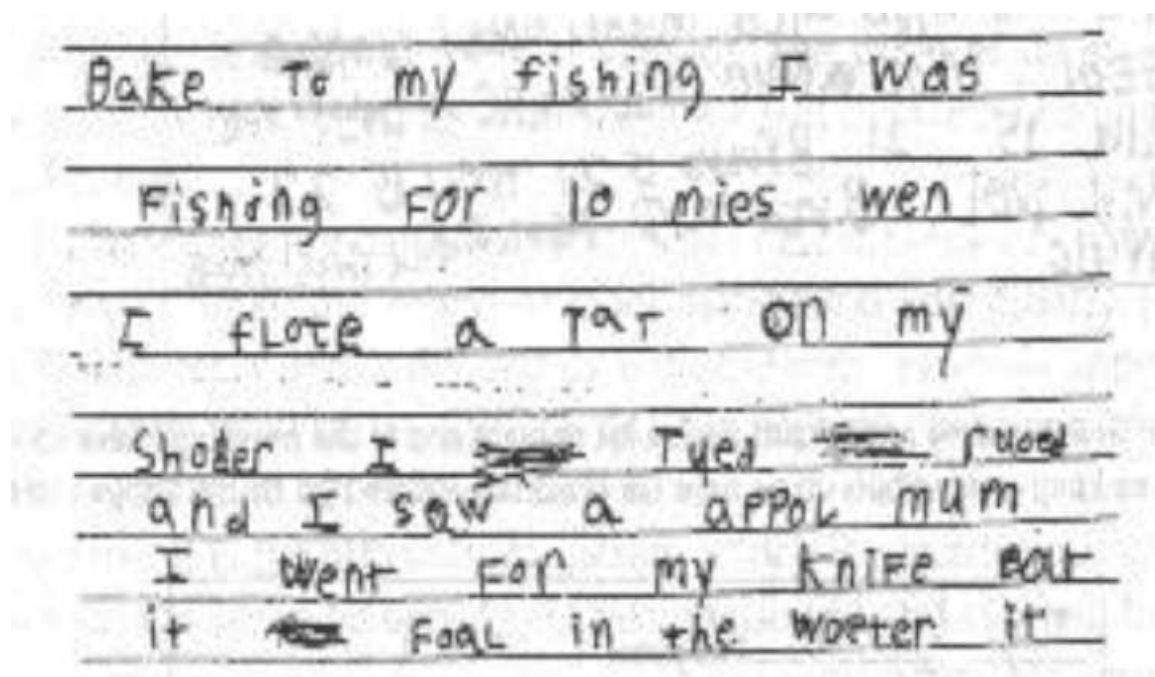 Bake To my fishing I was
Fishing For 10 mies wen
I flote a Tat on my
Shoder I Tyed rued
and I sew a appol mum
I went For my knife Bat
it Foal in the woeter it